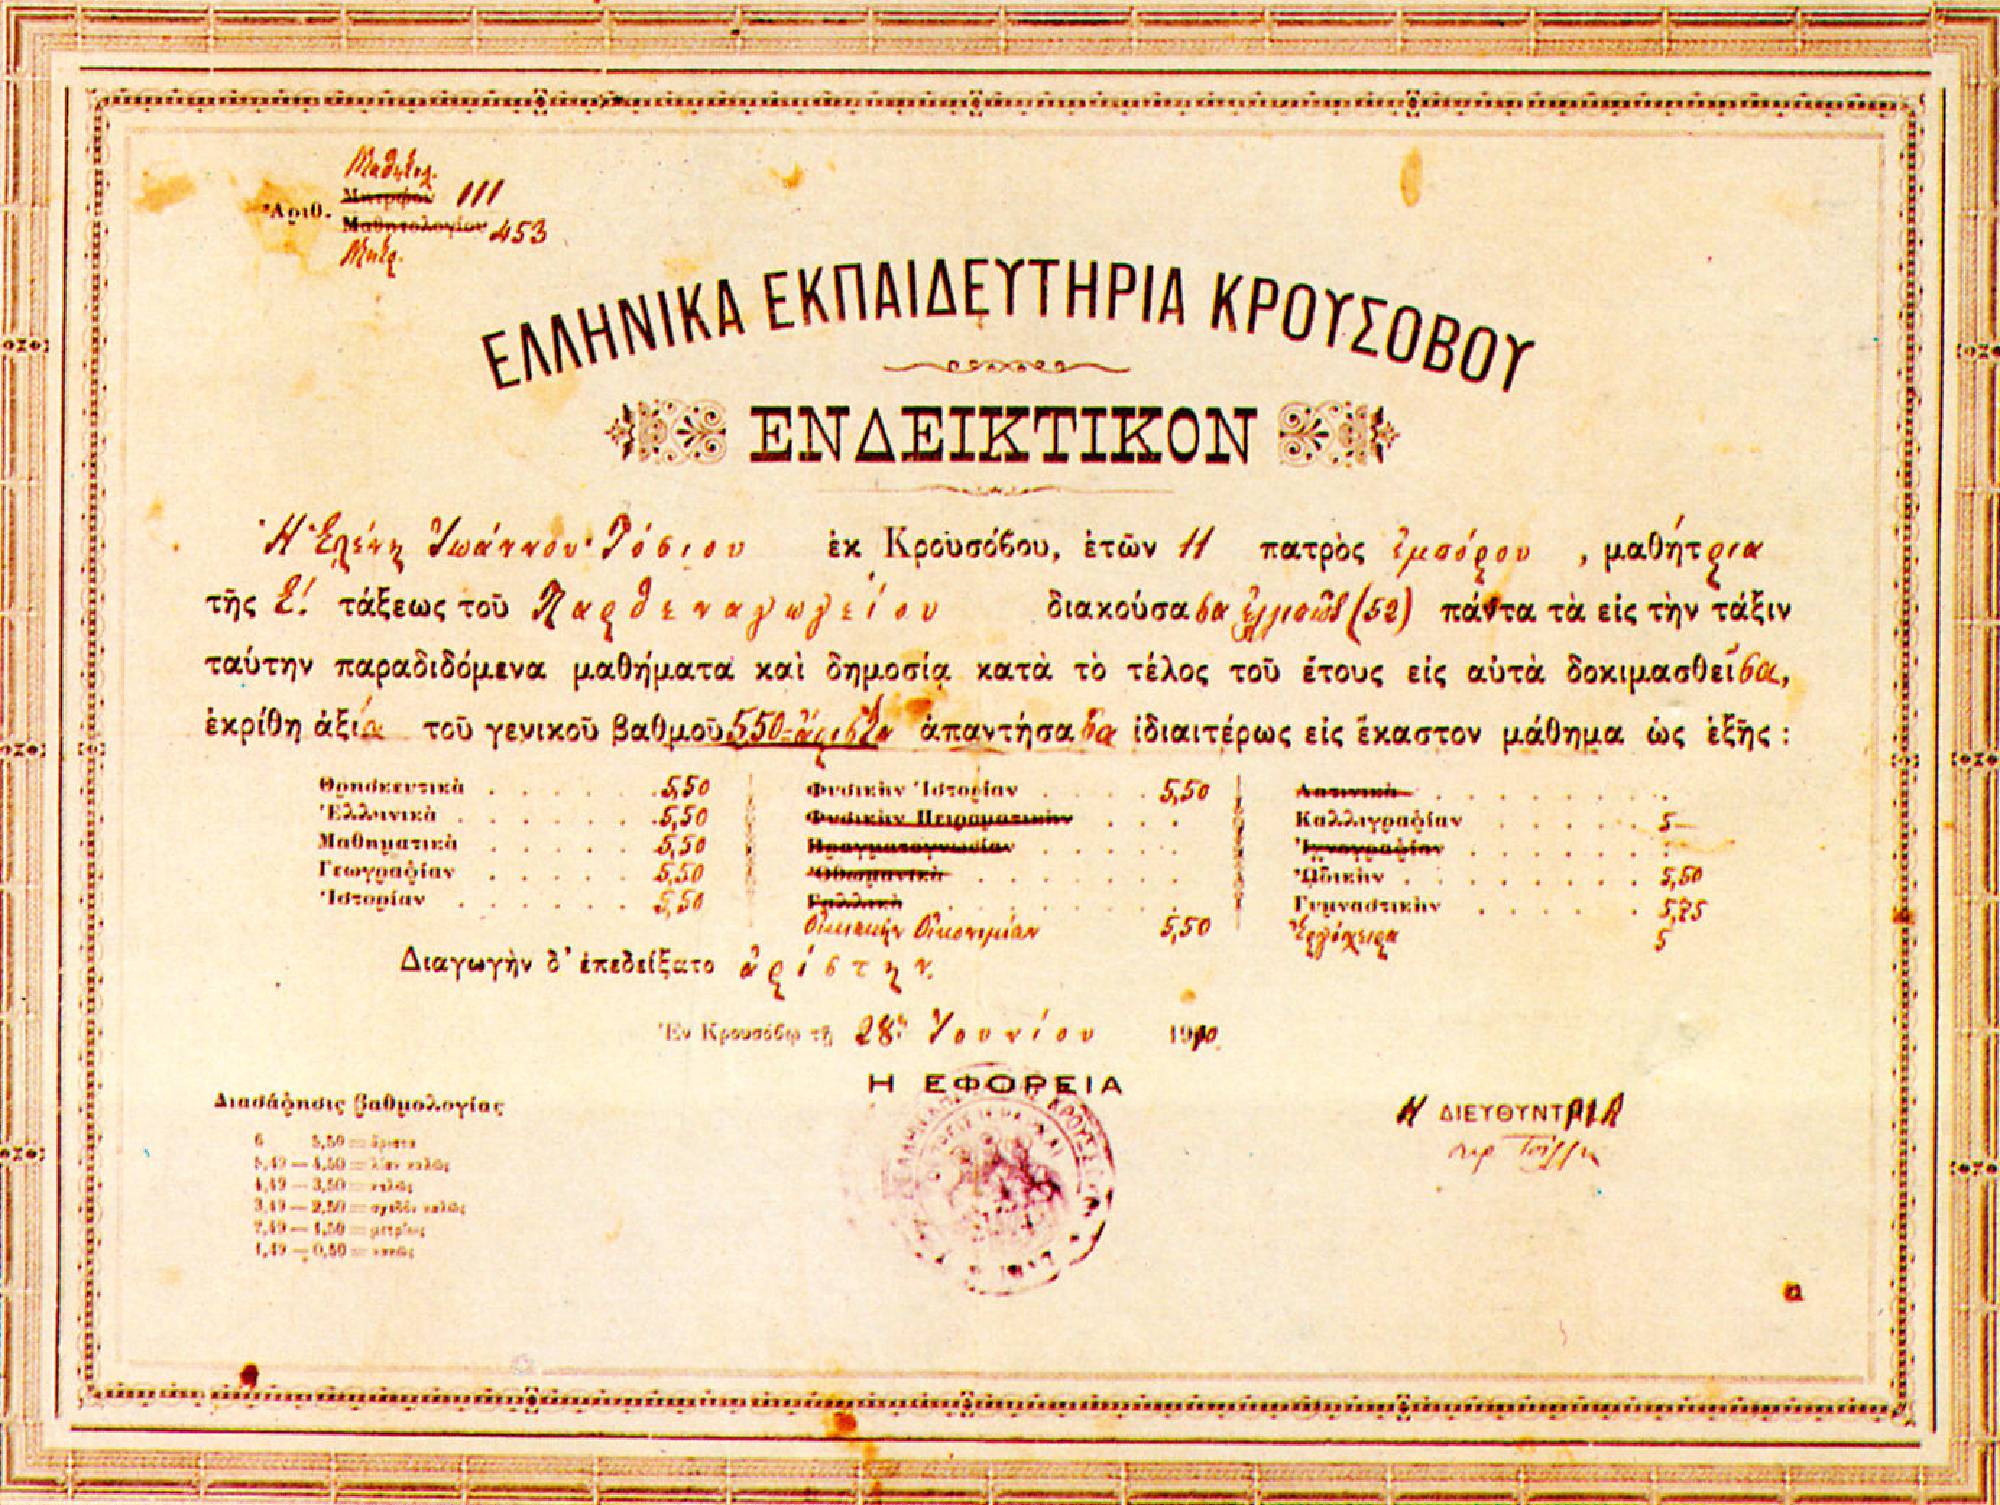 Μαθητολ.
Ἀριθ. Μητρῴου 111
Μαθητολογίου 453
Μητρ.
ΕΛΛΗΝΙΚΑ ΕΚΠΑΙΔΕΥΤΗΡΙΑ ΚΡΟΥΣΟΒΟΥ
ΕΝΔΕΙΚΤΙΚΟΝ
Ἡ Ἑλένη Ἰωάννου ἐκ Κρουσόβου, ἐτῶν 11 πατρὸς ἐμπόρου, μαθήτρια
τῆς τάξεως τοῦ Παρθεναγωγείου διακούσασα ἐλλιπῶς (52) πάντα τὰ εἰς τὴν τάξιν
ταύτην παραδιδόμενα μαθήματα καὶ δημοσίᾳ κατὰ τὸ τέλος τοῦ ἔτους εἰς αὐτὰ δοκιμασθεῖσα,
ἐκρίθη ἀξία τοῦ γενικοῦ βαθμοῦ 550 = ἄριστα ἀπαντήσασα ἰδιαιτέρως εἰς ἕκαστον μάθημα ὡς ἑξῆς :
Θρησκευτικὰ . . . . . . 5,50
Ἑλληνικὰ . . . . . . . 5,50
Μαθηματικὰ . . . . . . 5,50
Γεωγραφίαν . . . . . . 5,50
Ἱστορίαν . . . . . . . 5,50
Φυσικὴν Ἱστορίαν . . . . 5,50
Φυσικὴν Πειραματικὴν . . .
Πραγματογνωσίαν . . . . .
Ὀθωμανικὰ . . . . . . .
Γαλλικὰ . . . . . . . .
Οἰκιακὴν Οἰκονομίαν 5,50
Λατινικὰ . . . . . . . .
Καλλιγραφίαν . . . . . 5
Ἰχνογραφίαν . . . . . . .
ᾨδικὴν . . . . . . . 5,50
Γυμναστικὴν . . . . . 5,75
Ἐργόχειρα 5
Διαγωγὴν δ' ἐπεδείξατο ἀρίστην.
Ἐν Κρουσόβῳ τῇ 28ῃ Ἰουνίου 1910
Η ΕΦΟΡΕΙΑ
Η ΔΙΕΥΘΥΝΤΡΙΑ
Διασάφησις βαθμολογίας
6 5,50 = ἄριστα
5,49 — 4,50 = λίαν καλῶς
4,49 — 3,50 = καλῶς
3,49 — 2,50 = σχεδὸν καλῶς
2,49 — 1,50 = μετρίως
1,49 — 0,50 = κακῶς